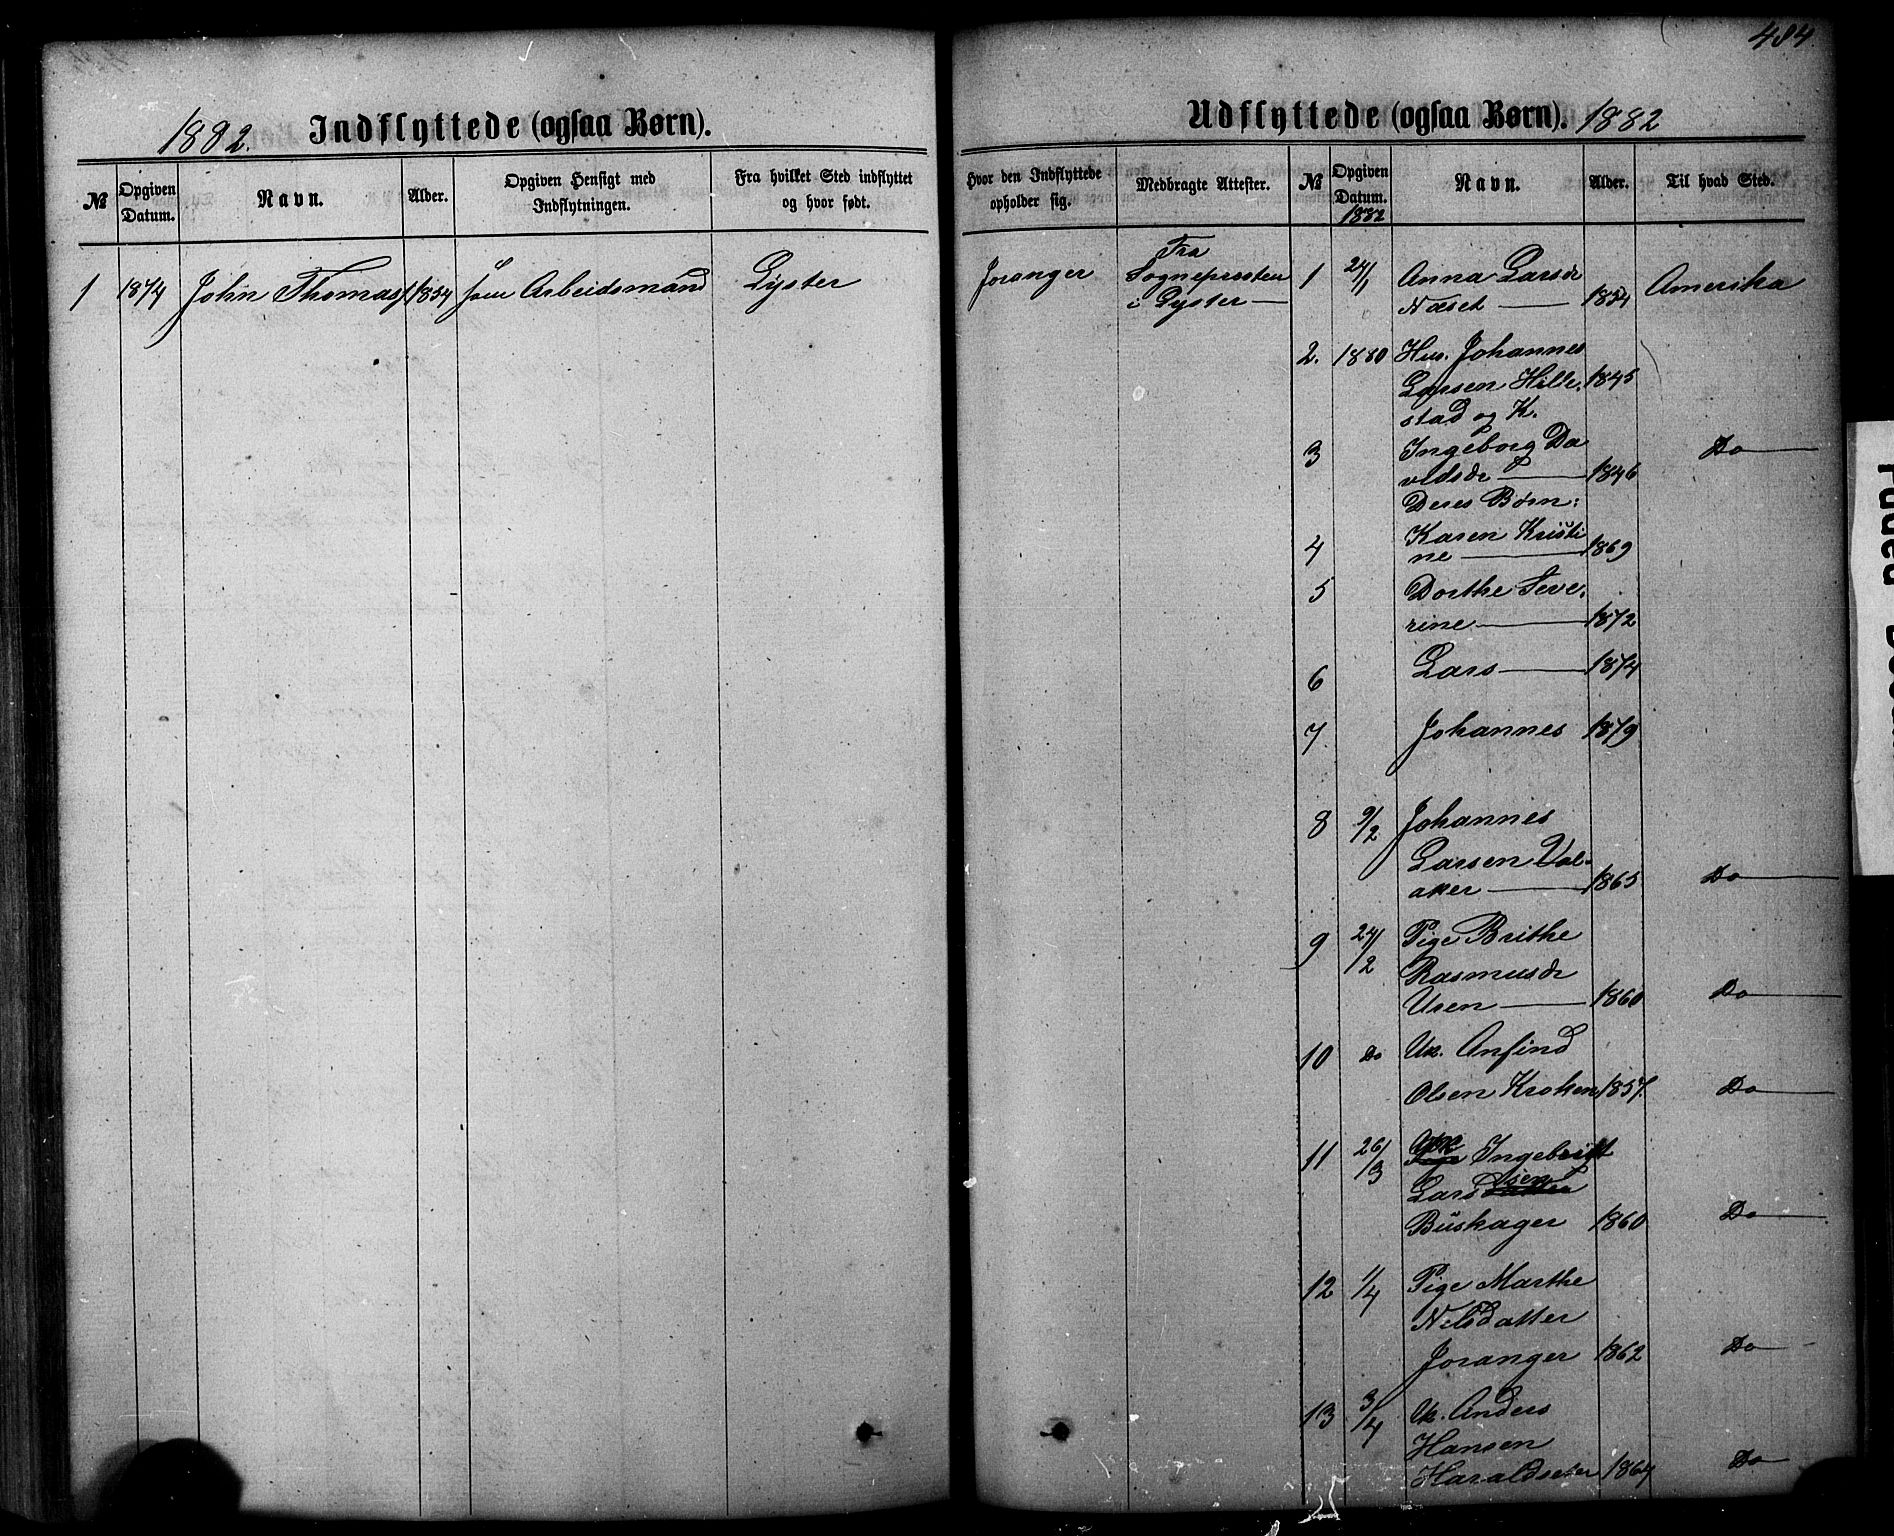 484
1882. Indflyttede (ogsaa Børn).
№ Opgiven Datum. Navn. Alder. Opgiven Hensigt med Indflytningen. Fra hvilket Sted indflyttet og hvor født.
1 18/4 John Thomas 1854 som Arbeidsmand Lyster
Udflyttede (ogsaa Børn). 1882
Hvor den Indflyttede opholder sig. Medbragte Attester. № Opgiven Datum. 1882 Navn. Alder. Til hvad Sted.
Joranger Fra Sognepresten i Lyster
1 24/1 Anna Larsdr
Næset 1854 Amerika
2. 1880 Hus. Johannes
Larsen Hille- 1845
stad og K.
3 Ingeborg Da Do
vidsdr 1846
Deres Børn:
4 Karen Kristi
ne 1869
5 Dorthe Seve-
rine 1872
6 Lars 1874
7. Johannes 1879
8 9/2 Johannes
Larsen Val-
aker 1865 Do
9 24/2 Pige Brithe
Rasmusdr
Uren 1860 Do
10 Do Uk. Anfind
Olsen Kroken 1857. Do
11 26/3 Ingebrigt
Larssen
Buskager 1860 Do
12 1/4 Pige Marthe
Nilsdatter
Joranger 1862 Do
13 3/4 Uk. Anders
Hansen
Haraldseter 1864 Do